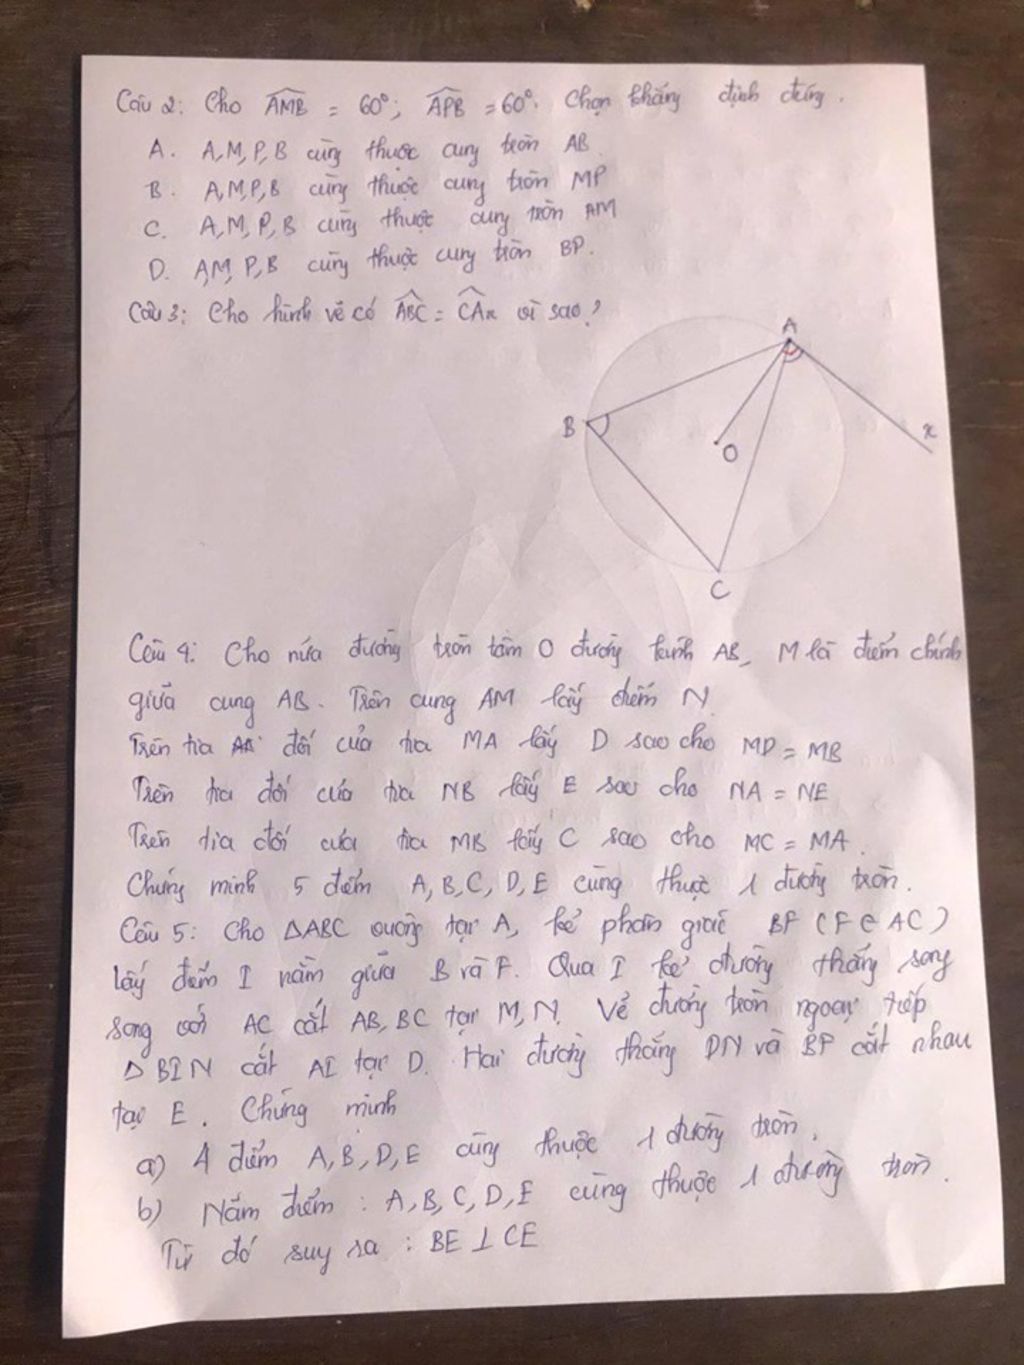 Câu 2: Cho AMB = 60°; APB = 60°. Chọn khẳng định đúng.
A. A,M,P,B cùng thuộc cung tròn AB.
B. A,M,P,B cùng thuộc cung tròn MP
C. A,M,P,B cùng thuộc cung tròn AM
D. A,M,P,B cùng thuộc cung tròn BP.
Câu 3: Cho hình vẽ có ABC = CAx vì sao?
A
B
O
x
C
Câu 4: Cho nửa đường tròn tâm O đường kính AB, M là điểm chính
giữa cung AB. Trên cung AM lấy điểm N.
Trên tia đối của tia MA lấy D sao cho MD = MB
Trên tia đối của tia NB lấy E sao cho NA = NE
Trên tia đối của tia MB lấy C sao cho MC = MA.
Chứng minh 5 điểm A,B,C,D,E cùng thuộc 1 đường tròn.
Câu 5: Cho ΔABC vuông tại A, kẻ phân giác BF (F ∈ AC)
lấy điểm I nằm giữa B và F. Qua I kẻ đường thẳng song
song với AC cắt AB, BC tại M, N. Vẽ đường tròn ngoại tiếp
Δ BIN cắt AI tại D. Hai đường thẳng DN và BF cắt nhau
tại E. Chứng minh
a) 4 điểm A,B,D,E cùng thuộc 1 đường tròn.
b) Năm điểm : A,B,C,D,E cùng thuộc 1 đường tròn.
Từ đó suy ra : BE ⊥ CE